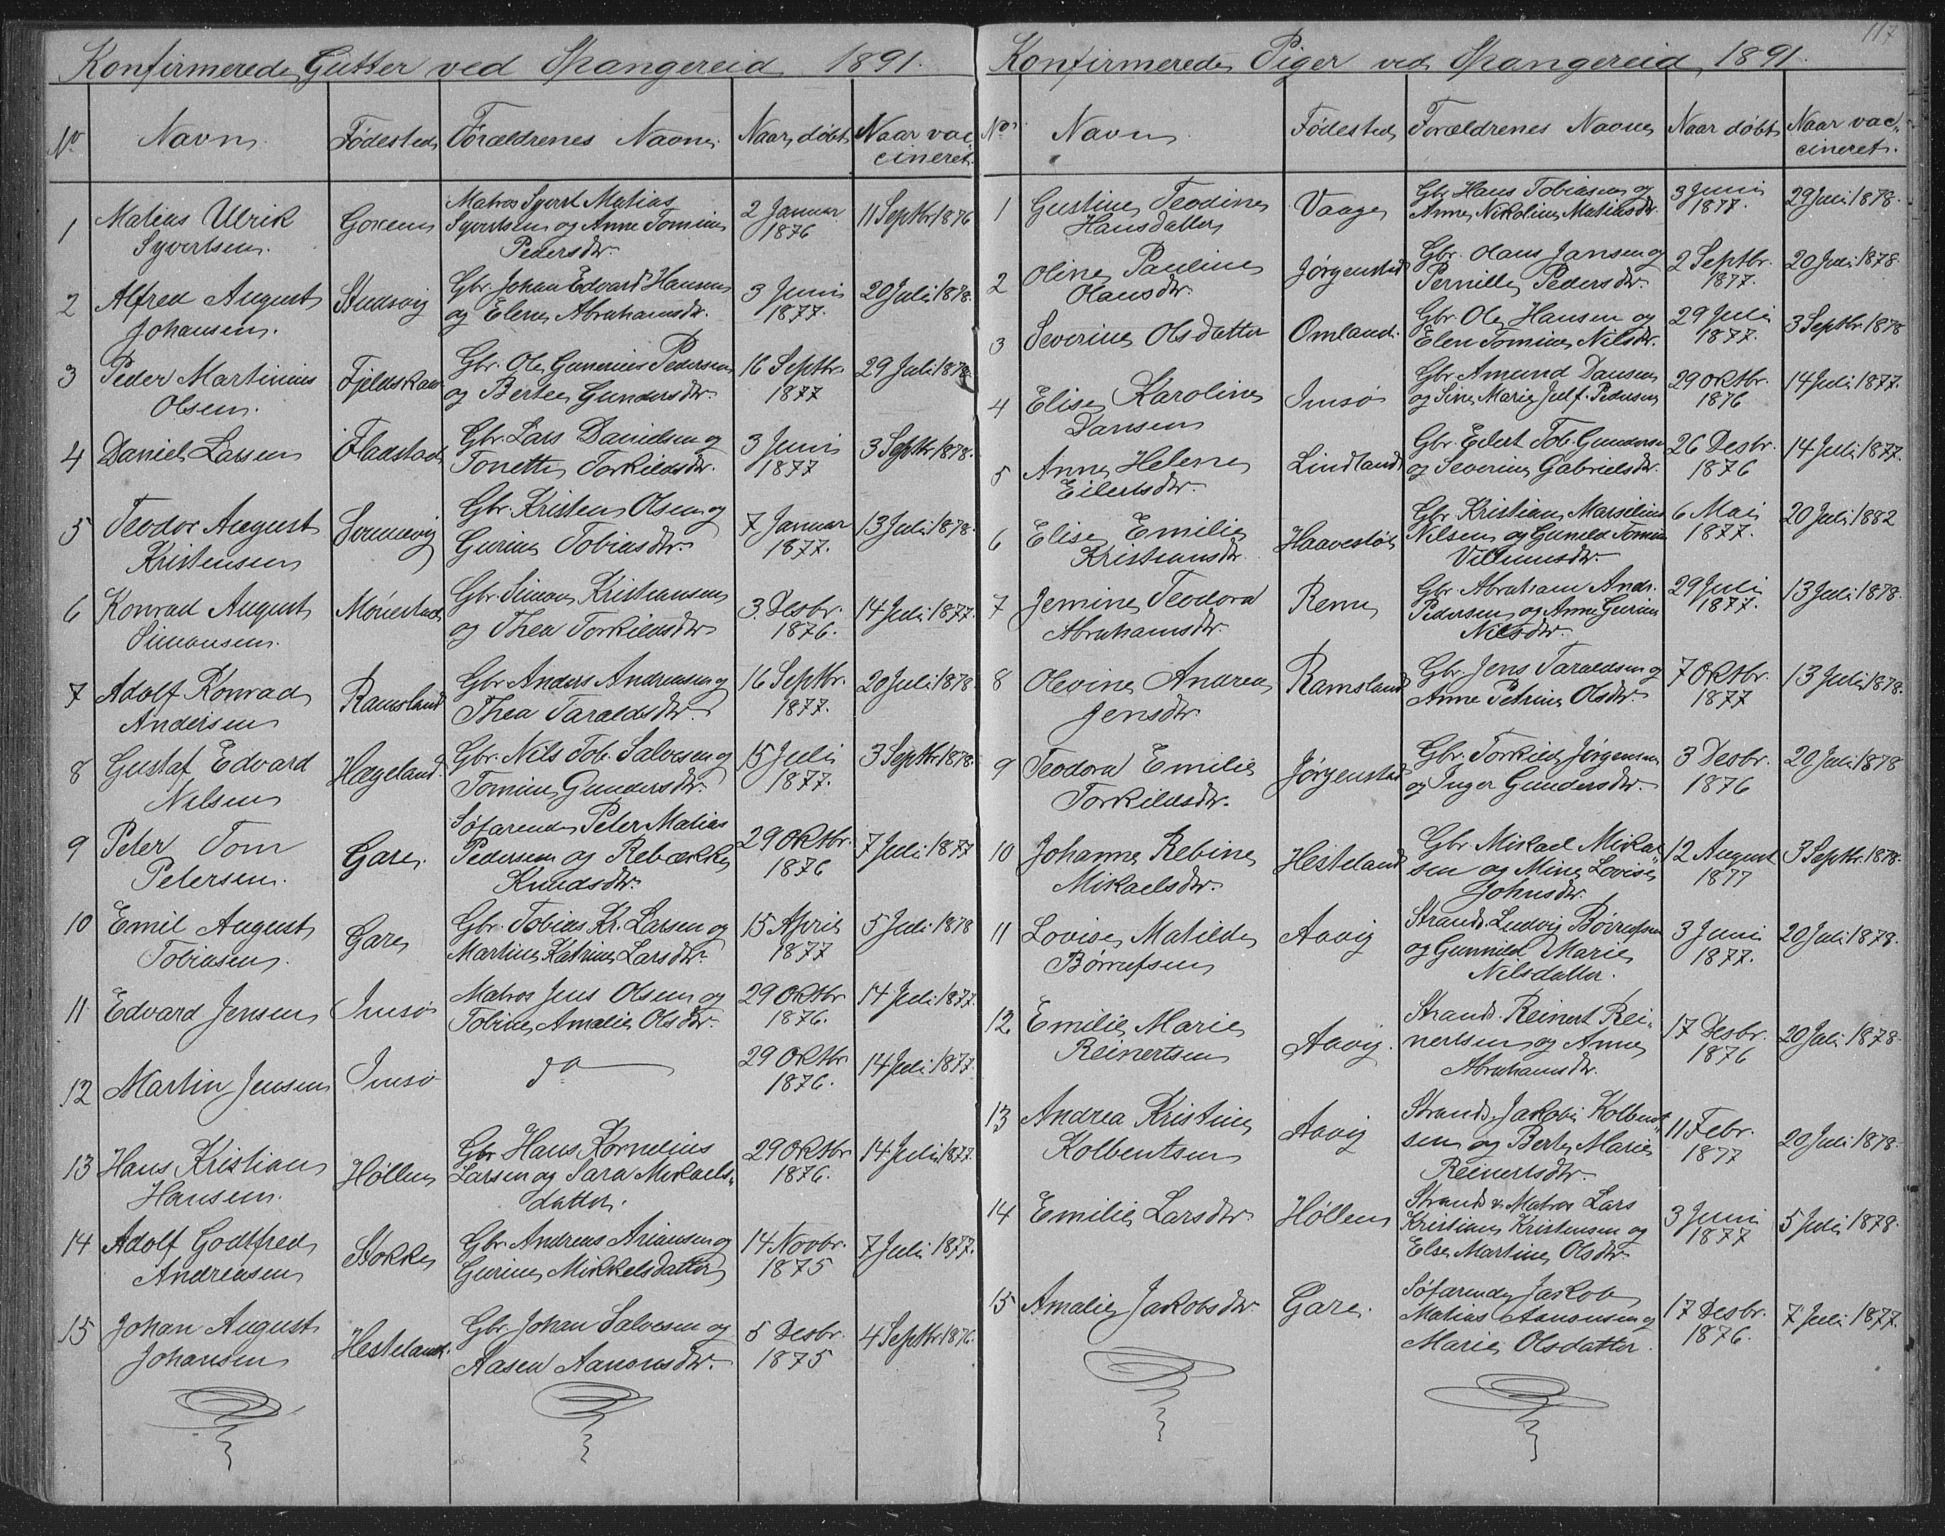 117
Konfirmerede Gutter ved Spangereid 1891.
No Navn. Fødested Forældrenes Navne. Naar døbt Naar vac-
cineret.
1 Matias Ulrik Syvertsen. Goxem Matros Syvert Matias
Syvertsen og Anne Tomine
Pedersdtr. 2 Januar
1876 11 Septbr 1876
2 Alfred August
Johansen. Studsvig Gbr. Johan Edvard Hansen
og Elene Abrahamsdtr. 3 Juni
1877. 20 Juli 1878.
3 Peder Martinius
Olsen. Fjeldskaar Gbr. Ole Gunerius Pedersen
og Berte Gundersdtr. 16 Septbr
1877 29 Juli 1878.
4 Daniel Larsen Fladstad Gbr. Lars Danielsen og
Tonette Torkildsdtr. 3 Juni
1877 3 Septbr 1878.
5 Teodor August
Kristensen Gbr. Kristen Olsen og
Gurine Tobiasdtr. 7 Januar
1877. 13 Juli 1878.
6 Konrad August
Simonsen. Mønestad Gbr. Simon Kristiansen
og Thea Torkildsdtr 3. Desbr.
1876. 14 Juli 1877.
7 Adolf Konrad
Andersen Ramsland Gbr Anders Andreasen og
Thea Taraldsdtr. 16 Septbr.
1877. 20 Juli 1878.
8 Gustaf Edvard
Nilsen Hægeland. Gbr. Nils Tob. Salvesen og
Tomine Gundersdtr. 15 Juli
1877. 3 Septbr 1878
9 Peter Tom
Petersen. Gare. Søfarende Peter Matias
Pedersen og Rebækka
Knudsdtr. 29 Oktbr.
1876 7 Juli 1877
10 Emil August
Tobiasen. Gare Gbr. Tobias Kr. Larsen og
Martine Katrine Larsdtr. 15 April
1877 5 Juli 1878
11 Edvard Jensen Imsø Matros Jens Olsen og
Tobine Amalie Olsdtr. 29 Oktbr
1876. 14 Juli 1877.
12 Martin Jensen Imsø do 29 Oktbr.
1876. 14 Juli 1877.
13 Hans Kristian
Hansen. Høllen Gbr Hans Kornelius
Larsen og Sara Mikaels-
datter. 29 Oktbr
1876. 14 Juli 1877.
14 Adolf Godtfred
Andreasen Stokke Gbr. Andreas Ariansen og
Gurine Mikkelsdatter 14 Novbr.
1875 7 Juli 1877.
15 Johan August
Johansen Hesteland. Gbr. Johan Salvesen og
Aasen Aanonsdtr. 5 Desbr.
1875 4 Septbr 1876.
Konfirmerede Piger ved Spangereid, 1891.
No. Navn Fødested Forældrenes Navne Naar døbt Naar vac-
cineret.
1 Gustine Teodine
Hansdatter Vaage Gbr. Hans Tobiasen og
Anne Nikoline Matiasdtr. 3 Juni
1877. 29 Juli 1878.
2 Oline Pauline
Olausdtr. Jørgenstad Gbr. Olaus Jansen og
Pernille Pedersdtr. 2 Septbr.
1877. 20 Juli 1878.
3 Severine Olsdatter Omland. Gbr. Ole Hansen og
Elen Tomine Nilsdtr. 29 Juli
1877. 3 Septbr. 1878
4 Elise Karoline
Dansen Imsø Gbr. Amund Dansen
og Sine Marie Pedersen 29 Oktbr.
1876 14 Juli 1877.
5 Anne Helene
Eilertsdtr. Lindland Gbr. Eilert Tob. Gundersen
og Severine Gabrielsdtr. 26 Desbr.
1876 14 Juli 1877.
6 Elise Emilie
Kristiansdtr. Haavestøl Gbr. Kristian Marselius
Nilsen og Gunild Tomine
Villumsdtr. 6 Mai
1877. 20 Juli 1882
7 Jemine Teodora
Abrahamsdtr. Reme Gbr. Abraham Andr.
Pedersen og Anne Gurine
Nilsdtr. 29 Juli
1877. 13 Juli 1878.
8 Olevine Andrea
Jensdtr. Ramsland Gbr. Jens Taraldsen og
Anne Petrine Olsdtr. 7 Oktbr
1877 13 Juli 1878.
9 Teodora Emilie
Torkildsdtr. Jørgenstad Gbr. Torkild Jørgensen
og Inger Gundersdtr. 3 Desbr.
1876 20 Juli 1878
10 Johanne Rebine
Mikaelsdtr. Hesteland Gbr. Mikael Mikal-
sen og Mine Lovise
Johnsdtr. 12 August
1877 3 Septbr. 1878.
11 Lovise Matilde
Børrufsen Aavig Strands. Ludvig Børrufsen
og Gunnild Marie
Nilsdatter. 3 Juni
1877. 20 Juli 1878.
12 Emilie Marie
Reinertsen Aavig. Strands. Reinert Rei-
nertsen og Anne
Abrahamsdtr. 17 Desbr.
1876 20 Juli 1878.
13 Andrea Kristine
Kolbentsen Aavig Strands. Jakob Kolbent-
sen og Berte Marie
Reinertsdtr. 11 Febr.
1877 20 Juli 1878.
14 Emilie Larsdtr Høllen Strands & Matros Lars
Kristian Kristensen og
Else Martine Olsdtr. 3 Juni
1877 5 Juli 1878.
15 Amalie Jakobsdtr Gare. Søfarende Jakob
Matias Aanonsen og
Marie Olsdatter. 17 Desbr.
1876. 7 Juli 1877.